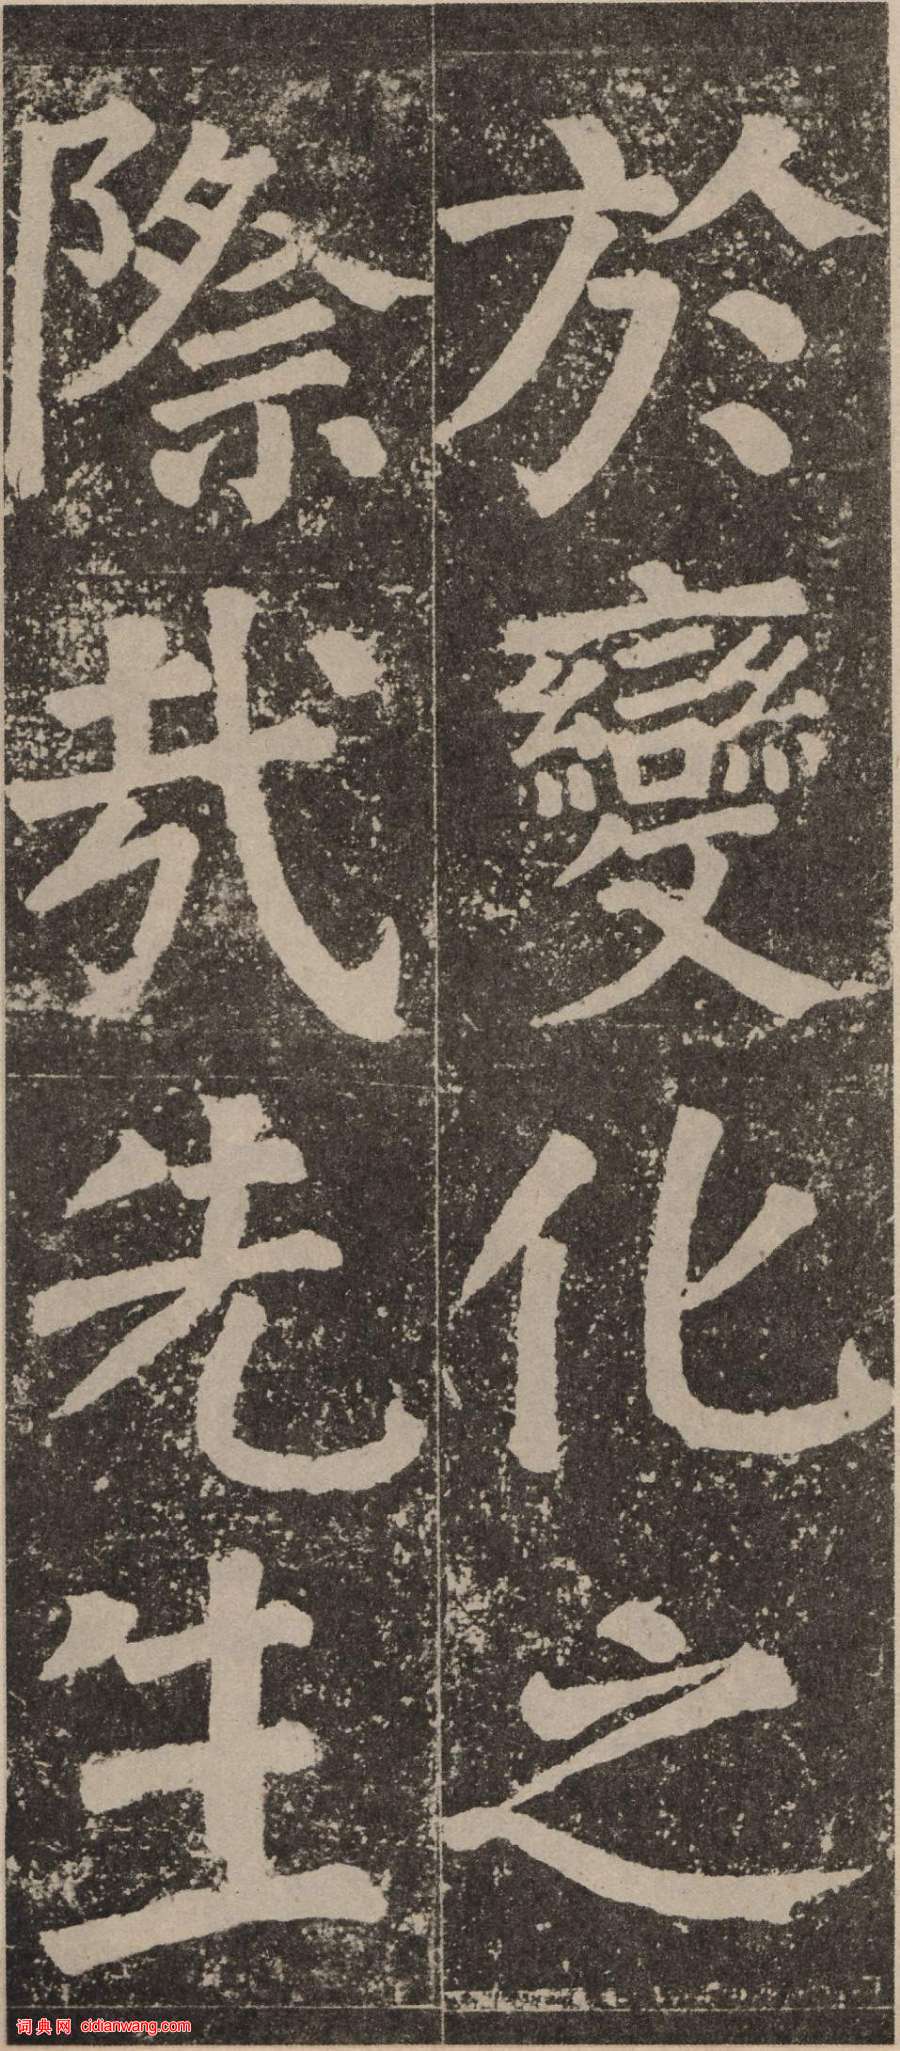 於變化之
際哉先生
词典网 cidianwang.com